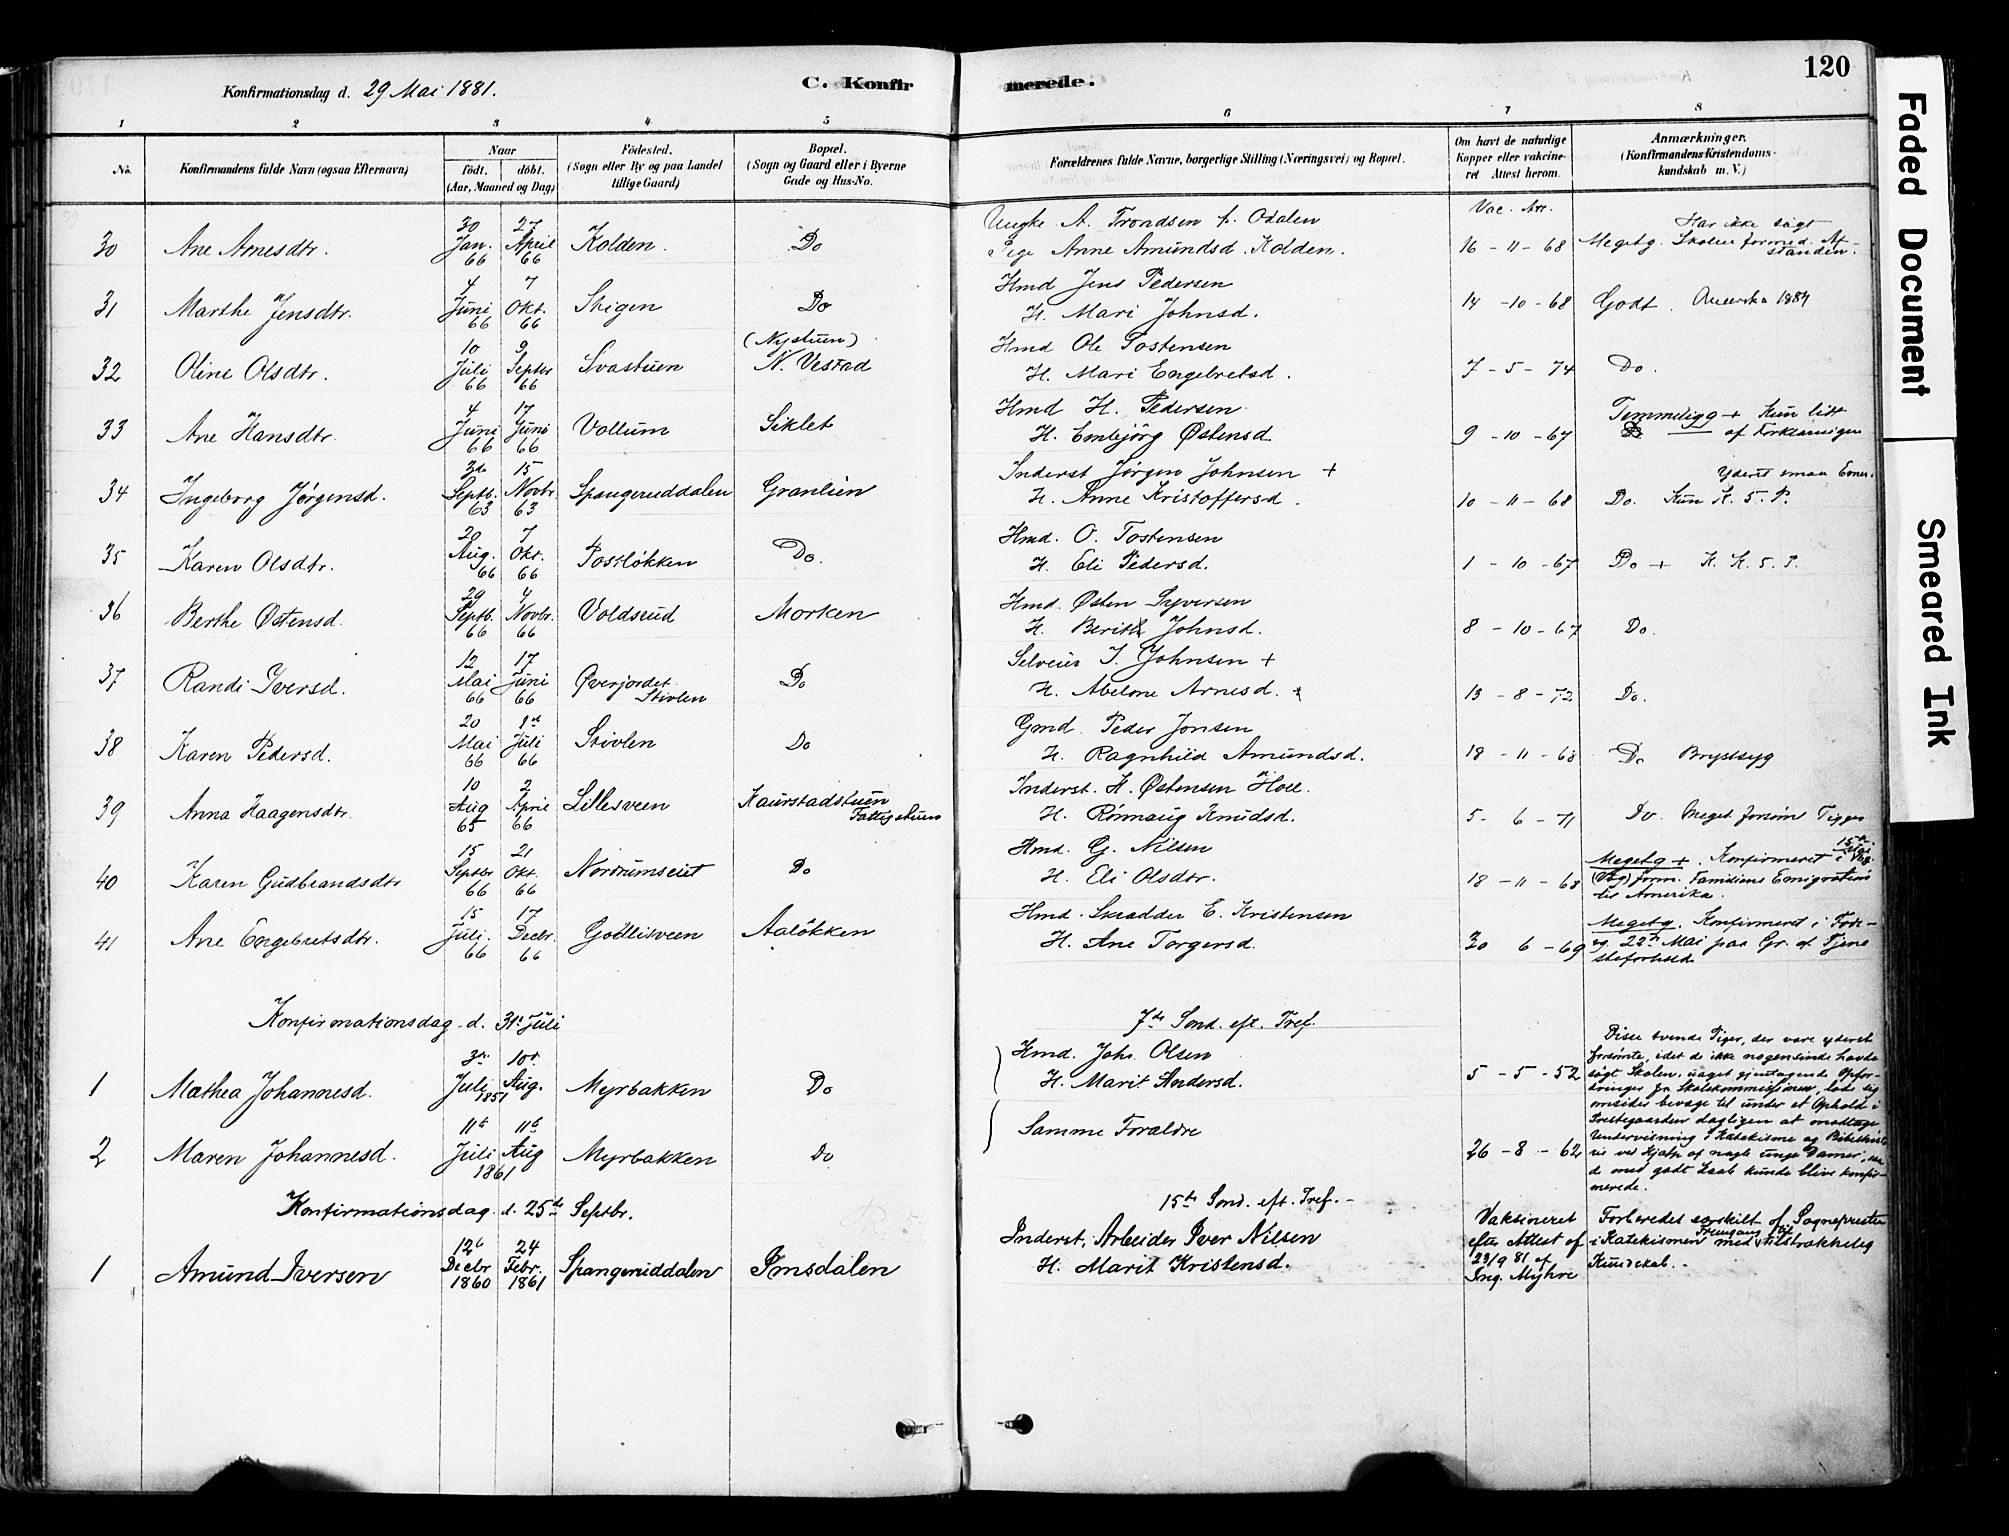 Konfirmationsdag d. 29 Mai 1881.
C. Konfir
merede.
120
1 2 3 4 5 6 7 8
No. Konfirmandens fulde Navn (ogsaa Efternavn)
Naar
födt. döbt.
(Aar, Maaned og Dag)
Födested.
(Sogn eller By og paa Landet
tillige Gaard)
Bopæl.
(Sogn og Gaard eller i Byerne
Gade og Hus-No.
Forældrenes fulde Navne, borgerlige Stilling (Næringsvei) og Bopæl.
Om havt de naturlige
Kopper eller vakcine-
ret Attest herom.
Anmærkninger.
(Konfirmandens Kristendoms-
kundskab m. V.)
Vac. Att.
30 Ane Arnesdtr. 30 Jan. 66 27 April 66 Kolden. Do
Ungk. A. Trondsen f. Odalen
Pige Anne Amundsd. Kolden.
16 - 11 - 68 Megetg. Har ikke søgt
Skolen formed. Af-
standen.
31 Marthe Jensdtr. 4 Juni 66 7 Okt. 66 Stigen Do
Hmd Jens Pedersen
H. Mari Johnsd.
14 - 10 - 68 Godt. Amerika 1884
32 Oline Olsdtr. 10 Juli 66 9 Septbr 66 Svastuen (Nystuen) N. Vestad
Hmd Ole Tostensen
H. Mari Engebretsd.
7 - 5 - 74 Do.
33 Ane Hansdtr. 4 Juni 66 17 Juni 66 Vollum Siklet
Hmd H. Pedersen
H. Embjörg Østensd.
9 - 10 - 67 Temmelig g + Kun lidt
af Forklaringen
34 Ingeborg Jørgensd. 3de Septb. 63 15 Novbr 63 Spangeruddalen Granlien
Inderst Jørgen Johnsen +
H. Anne Kristoffersd.
10 - 11 - 68 Do. Kun K. 5. P.
Yderst smaa Evner.
35 Karen Olsdtr. 20 Aug. 66 7 Okt. 66 Postløkken Do.
Hmd. O. Tostensen
H. Eli Pedersd.
1 - 10 - 67 Do + K. K. 5. P.
36 Berthe Østensd. 29 Septb. 66 4 Novbr. 66 Voldsrud Morken
Hmd. Østen Syversen
H. Berith Johnsd.
8 - 10 - 67 Do.
37 Randi Iversd. 12 Mai 66 17 Juni 66 Øverjordet Stivlen Do
Selveier I. Johnsen +
H. Abelone Arnesd. +
13 - 8 - 72 Do.
38 Karen Pedersd. 20 Mai 66 1st Juli 66 Stivlen Do
Gmd. Peder Jonsen
H. Ragnhild Amundsd.
18 - 11 - 68 Do Brystsyg
39 Anna Haagensdtr. 10 Aug 65 2 April 66 Lillesveen Kaurstadstuen
Inderst. H. Østensen Hoel.
H. Rønnaug Knudsd.
5 - 6 - 71 Do. Meget forsømt Tigger
40 Karen Gudbrandsdtr 15 Septbr 66 21 Okt. 66 Nordrumseiet Do
Hmd. G. Nilsen
H. Eli Olsdtr.
18 - 11 - 68 Megetg +. Konfirmeret 15de Mai
form. Familiens Emigration
til Amerika.
41 Ane Engebretsdtr. 15 Juli. 66 17 Decbr. 66 Gollisveen Aaløkken
Hmd. Skradder E. Kristensen
H. Ane Torgersd.
30 6 - 69 Megetg. Konfirmeret i
22de Mai paa Gr. af Tjene
steforhold
Konfirmationsdag d. 31te Juli 7de Sond. eft. Tref.
1 Mathea Johannesd. 3de Juli 1851 10de Aug. Myrbakken Do
Hmd. Joh. Olsen
H. Marit Andersd.
5 - 5 - 52
2 Maren Johannesd. 11te Juli 11te Aug 1861 Myrbakken Do
Samme Foraldre
26 - 8 - 62
Disse tvende Piger, der vare yderst
forsömte, idet de ikke nogensinde havde
søgt Skolen, uaget gjentagende Opfor-
dringer fra Skolekommissionen, lode sig
omsider bevæge til under et Ophold i
Prestegaarden dagligen at modtage
Undervisning i Katekisme og Bibelhisto
rie ved Hjælp af nogle unge Damer, saa
de med godt Haab kunde blive konfir-
merede.
Konfirmationsdag d. 25de Septbr. 15de Sond. eft. Tref.
1 Amund Iversen 12te Decbr 1860 24 Febr. 1861 Spangeruddalen Imsdalen
Inderst, Arbeider Iver Nilsen
H. Marit Kristensd.
Vaksineret
efter Attest af
23/9 81 af
Ing. Myhre
Forberedet særskilt af Sognepresten
i Katekismen med tilstrækkelig
Kundskab.
Faded Document
Smeared Ink